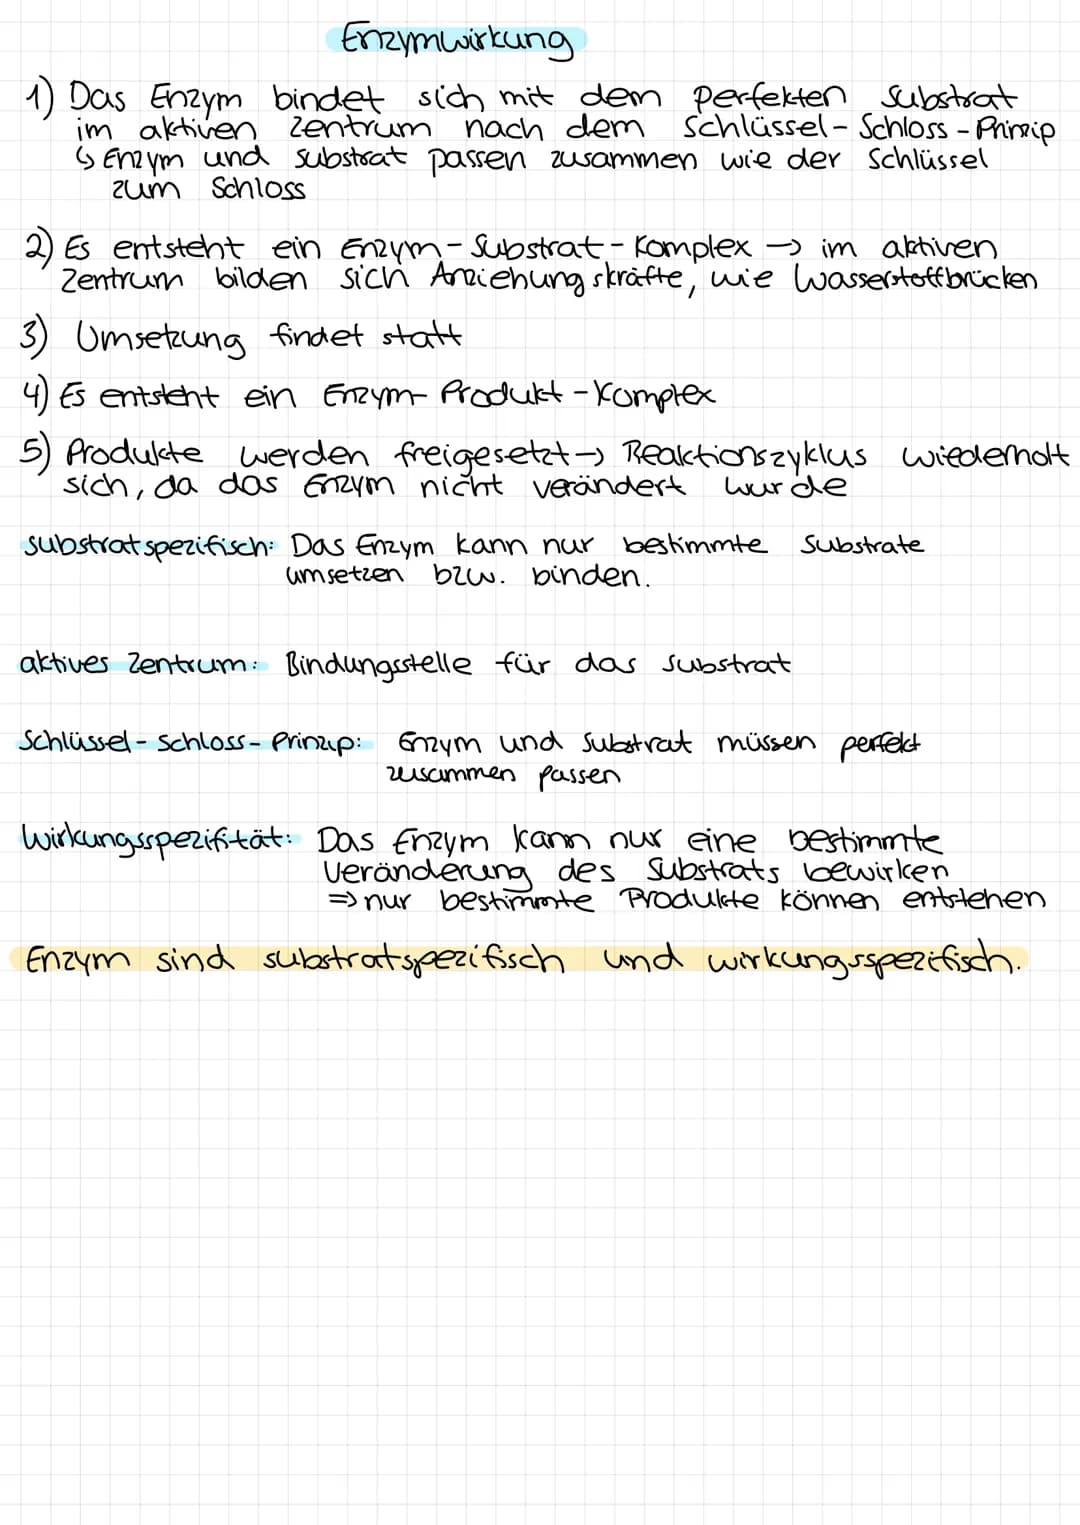 Enzymwirkung
1) Das Enzym bindet sich mit dem perfekten Substrat
im aktiven Zentrum nach dem Schlüssel-Schloss-Prinzip
↳ Enzym und Substrat passen zusammen wie der Schlüssel
zum Schloss
2) Es entsteht ein Enzym-Substrat-Komplex → im aktiven
Zentrum bilden sich Anziehungskräfte, wie Wasserstoffbrücken
3) Umsetzung findet statt
4) Es entsteht ein Enzym-Produkt-Komplex
5) Produkte werden freigesetzt → Reaktionszyklus wiederholt
sich, da das Enzym nicht verändert wurde
substratspezifisch: Das Enzym kann nur bestimmte Substrate
umsetzen bzw. binden.
aktives Zentrum: Bindungsstelle für das Substrat
Schlüssel-Schloss-Prinzip: Enzym und Substrat müssen perfekt
zusammen passen
Wirkungsspezifität: Das Enzym kann nur eine bestimmte
Veränderung des Substrats bewirken
⇒ nur bestimmte Produkte können entstehen
Enzym sind substratspezifisch und wirkungsspezifisch.